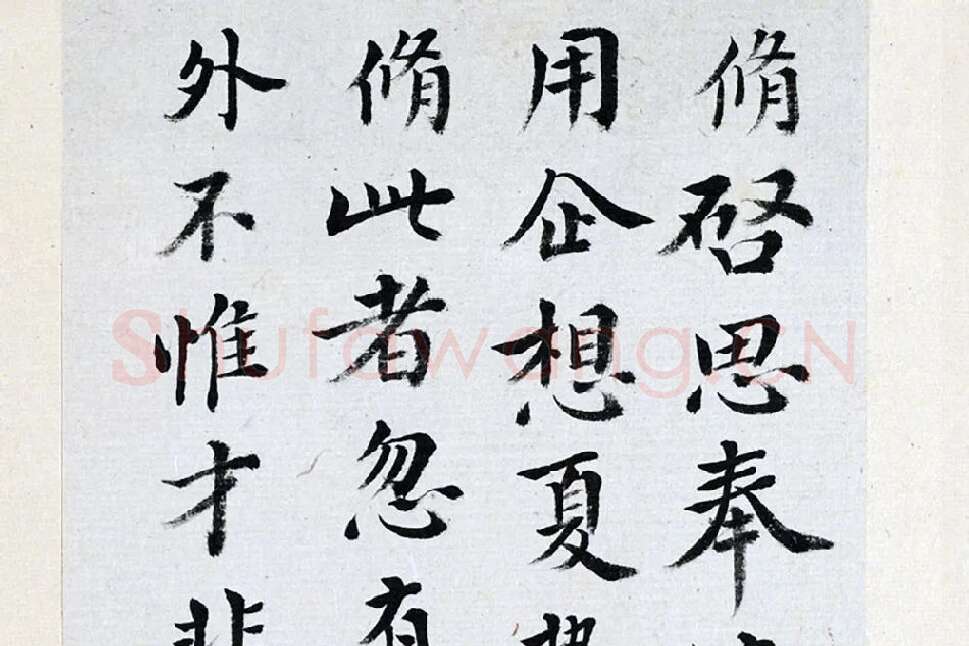 脩啓思奉
用企想夏
脩此者忽有
外不惟才非
Shufawang.CN